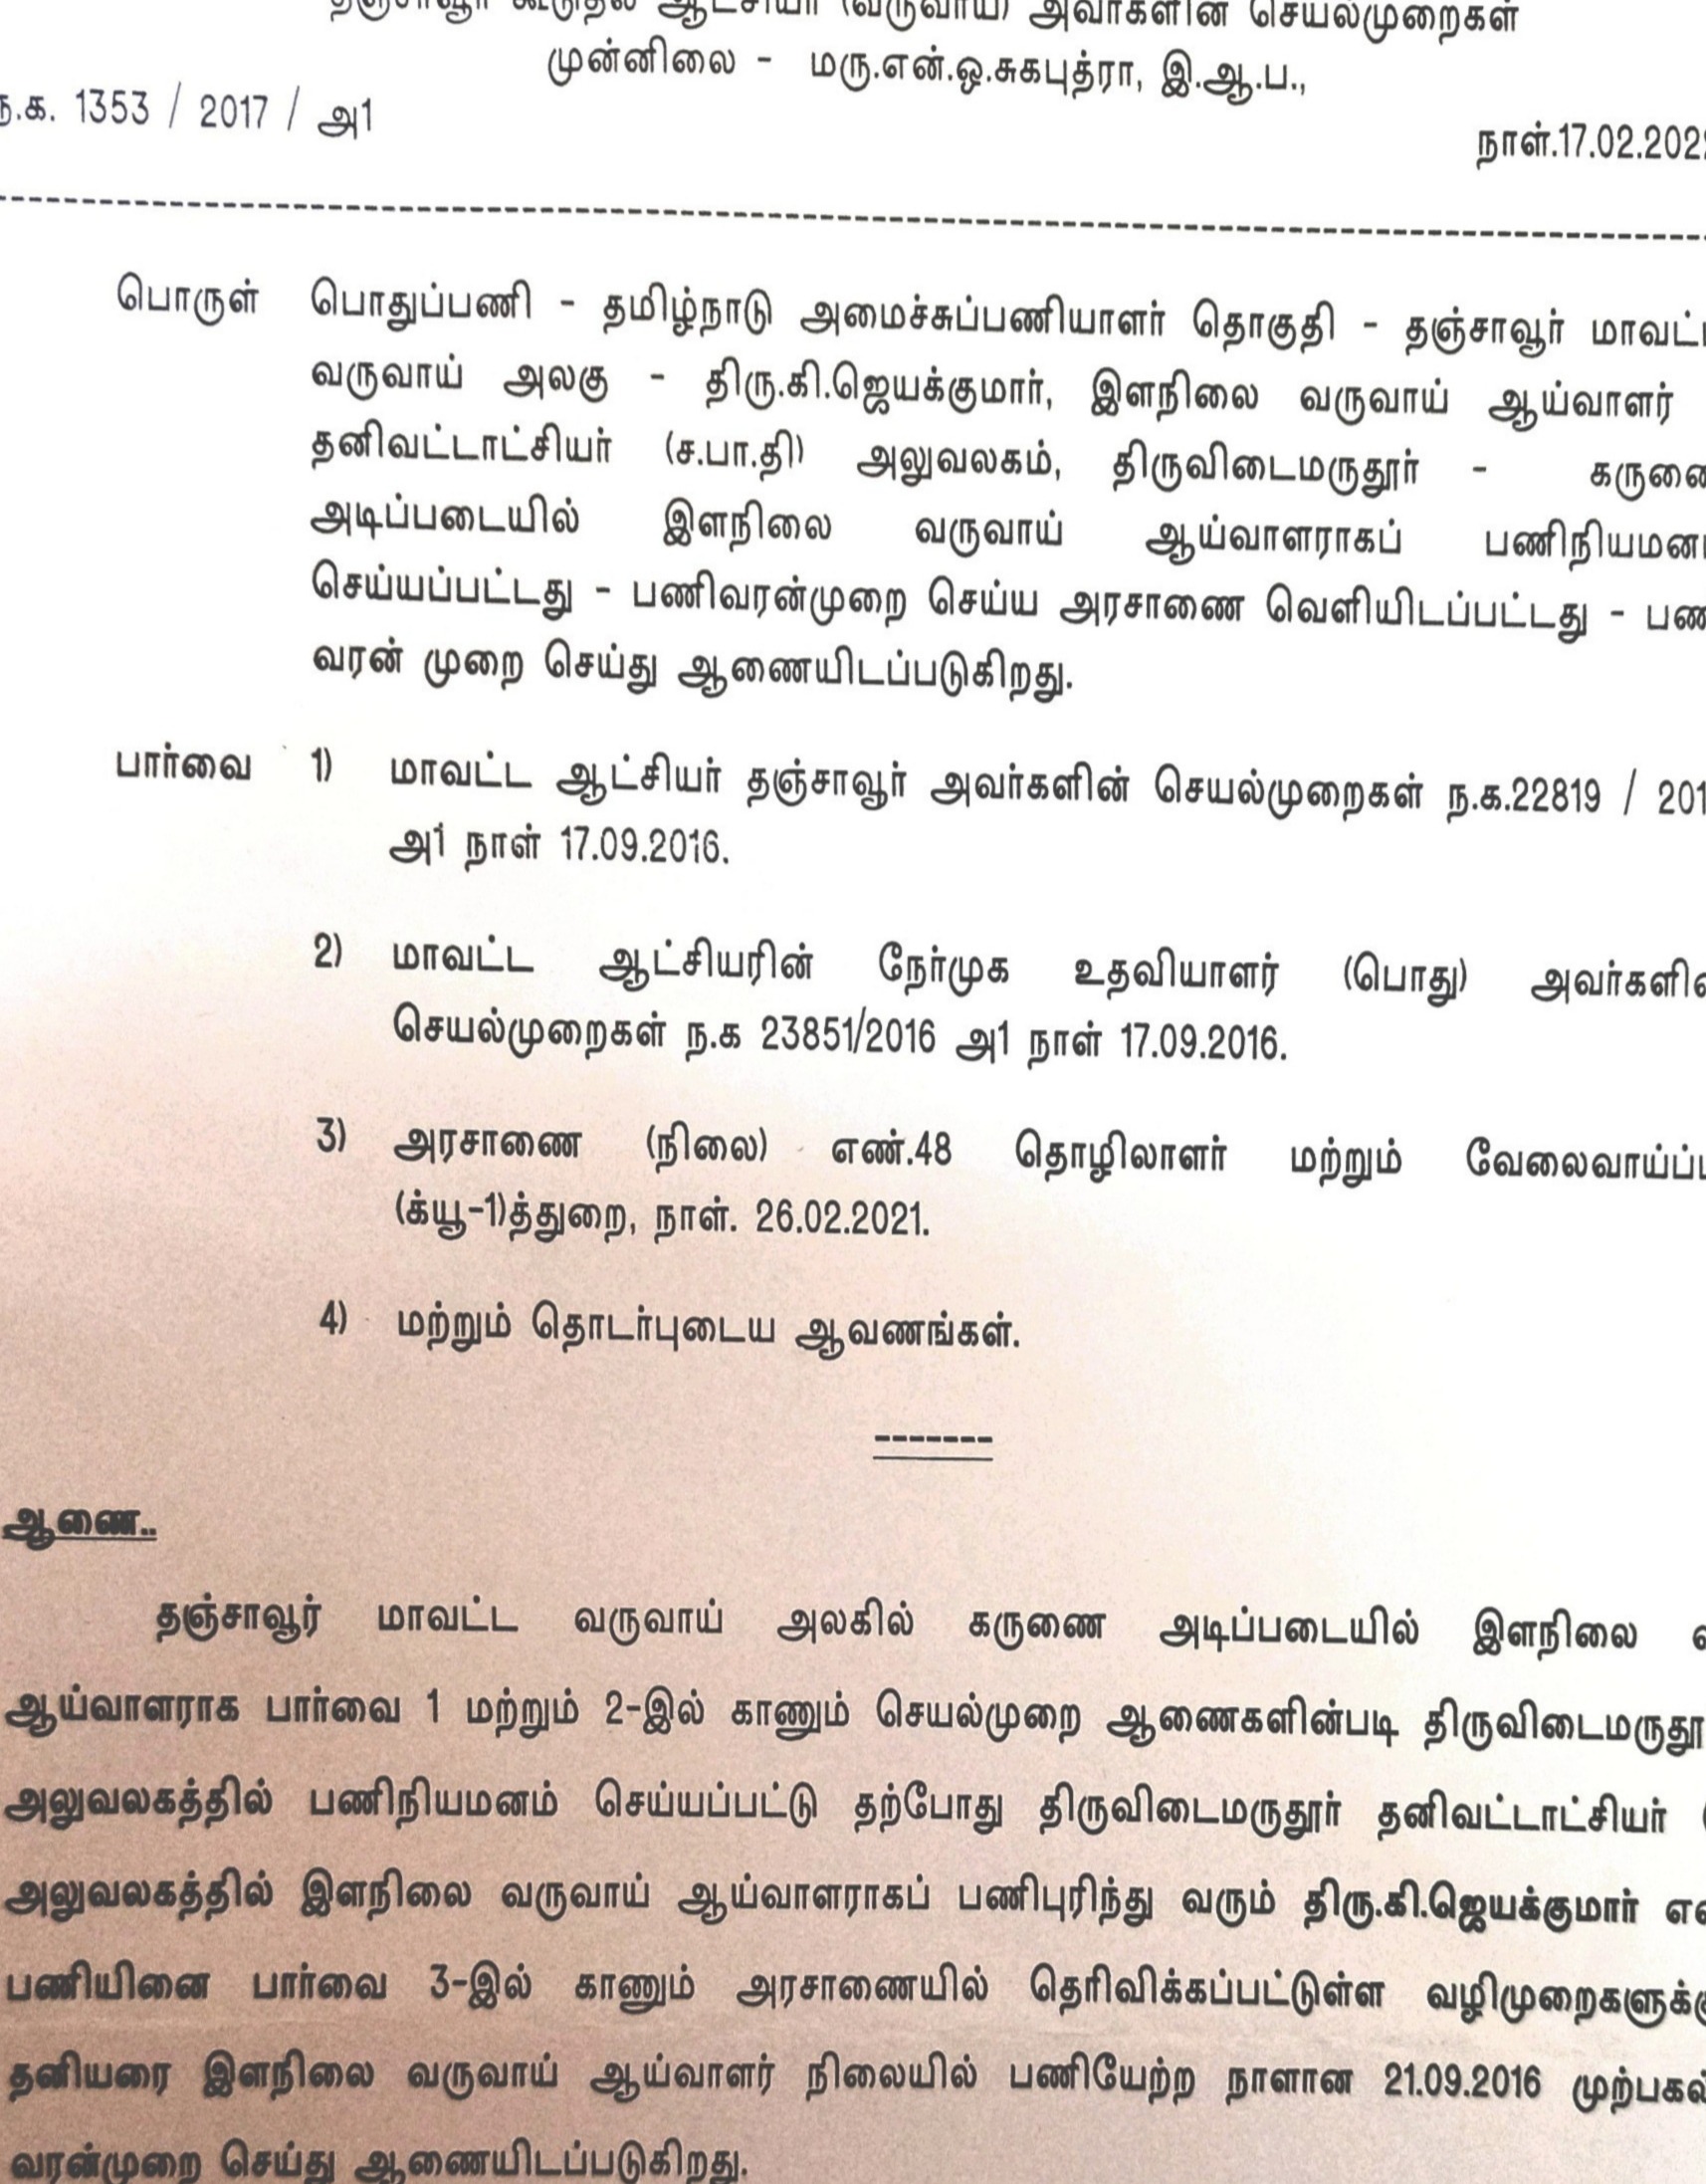 தஞ்சாவூர் கூடுதல் ஆட்சியர் (வருவாய்) அவர்களின் செயல்முறைகள்
முன்னிலை - மரு.என்.ஒ.சுகபுத்ரா, இ.ஆ.ப.,
ந.க. 1353 / 2017 / அ1
நாள்.17.02.202
பொருள் பொதுப்பணி - தமிழ்நாடு அமைச்சுப்பணியாளர் தொகுதி - தஞ்சாவூர் மாவட்ட
வருவாய் அலகு - திரு.கி.ஜெயக்குமார், இளநிலை வருவாய் ஆய்வாளர்
தனிவட்டாட்சியர் (ச.பா.தி) அலுவலகம், திருவிடைமருதூர் - கருணை
அடிப்படையில் இளநிலை வருவாய் ஆய்வாளராகப் பணிநியமன
செய்யப்பட்டது - பணிவரன்முறை செய்ய அரசாணை வெளியிடப்பட்டது - பண
வரன் முறை செய்து ஆணையிடப்படுகிறது.
பார்வை 1) மாவட்ட ஆட்சியர் தஞ்சாவூர் அவர்களின் செயல்முறைகள் ந.க.22819 / 201
அ1 நாள் 17.09.2016.
2) மாவட்ட ஆட்சியரின் நேர்முக உதவியாளர் (பொது) அவர்களின்
செயல்முறைகள் ந.க 23851/2016 அ1 நாள் 17.09.2016.
3) அரசாணை (நிலை) எண்.48 தொழிலாளர் மற்றும் வேலைவாய்ப்
(க்யூ-1)த்துறை, நாள். 26.02.2021.
4) மற்றும் தொடர்புடைய ஆவணங்கள்.
-------
ஆணை..
தஞ்சாவூர் மாவட்ட வருவாய் அலகில் கருணை அடிப்படையில் இளநிலை
ஆய்வாளராக பார்வை 1 மற்றும் 2-இல் காணும் செயல்முறை ஆணைகளின்படி திருவிடைமருதூ
அலுவலகத்தில் பணிநியமனம் செய்யப்பட்டு தற்போது திருவிடைமருதூர் தனிவட்டாட்சியர் (
அலுவலகத்தில் இளநிலை வருவாய் ஆய்வாளராகப் பணிபுரிந்து வரும் திரு.கி.ஜெயக்குமார் என
பணியினை பார்வை 3-இல் காணும் அரசாணையில் தெரிவிக்கப்பட்டுள்ள வழிமுறைகளுக்கு
தனியரை இளநிலை வருவாய் ஆய்வாளர் நிலையில் பணியேற்ற நாளான 21.09.2016 முற்பகல்
வரன்முறை செய்து ஆணையிடப்படுகிறது.